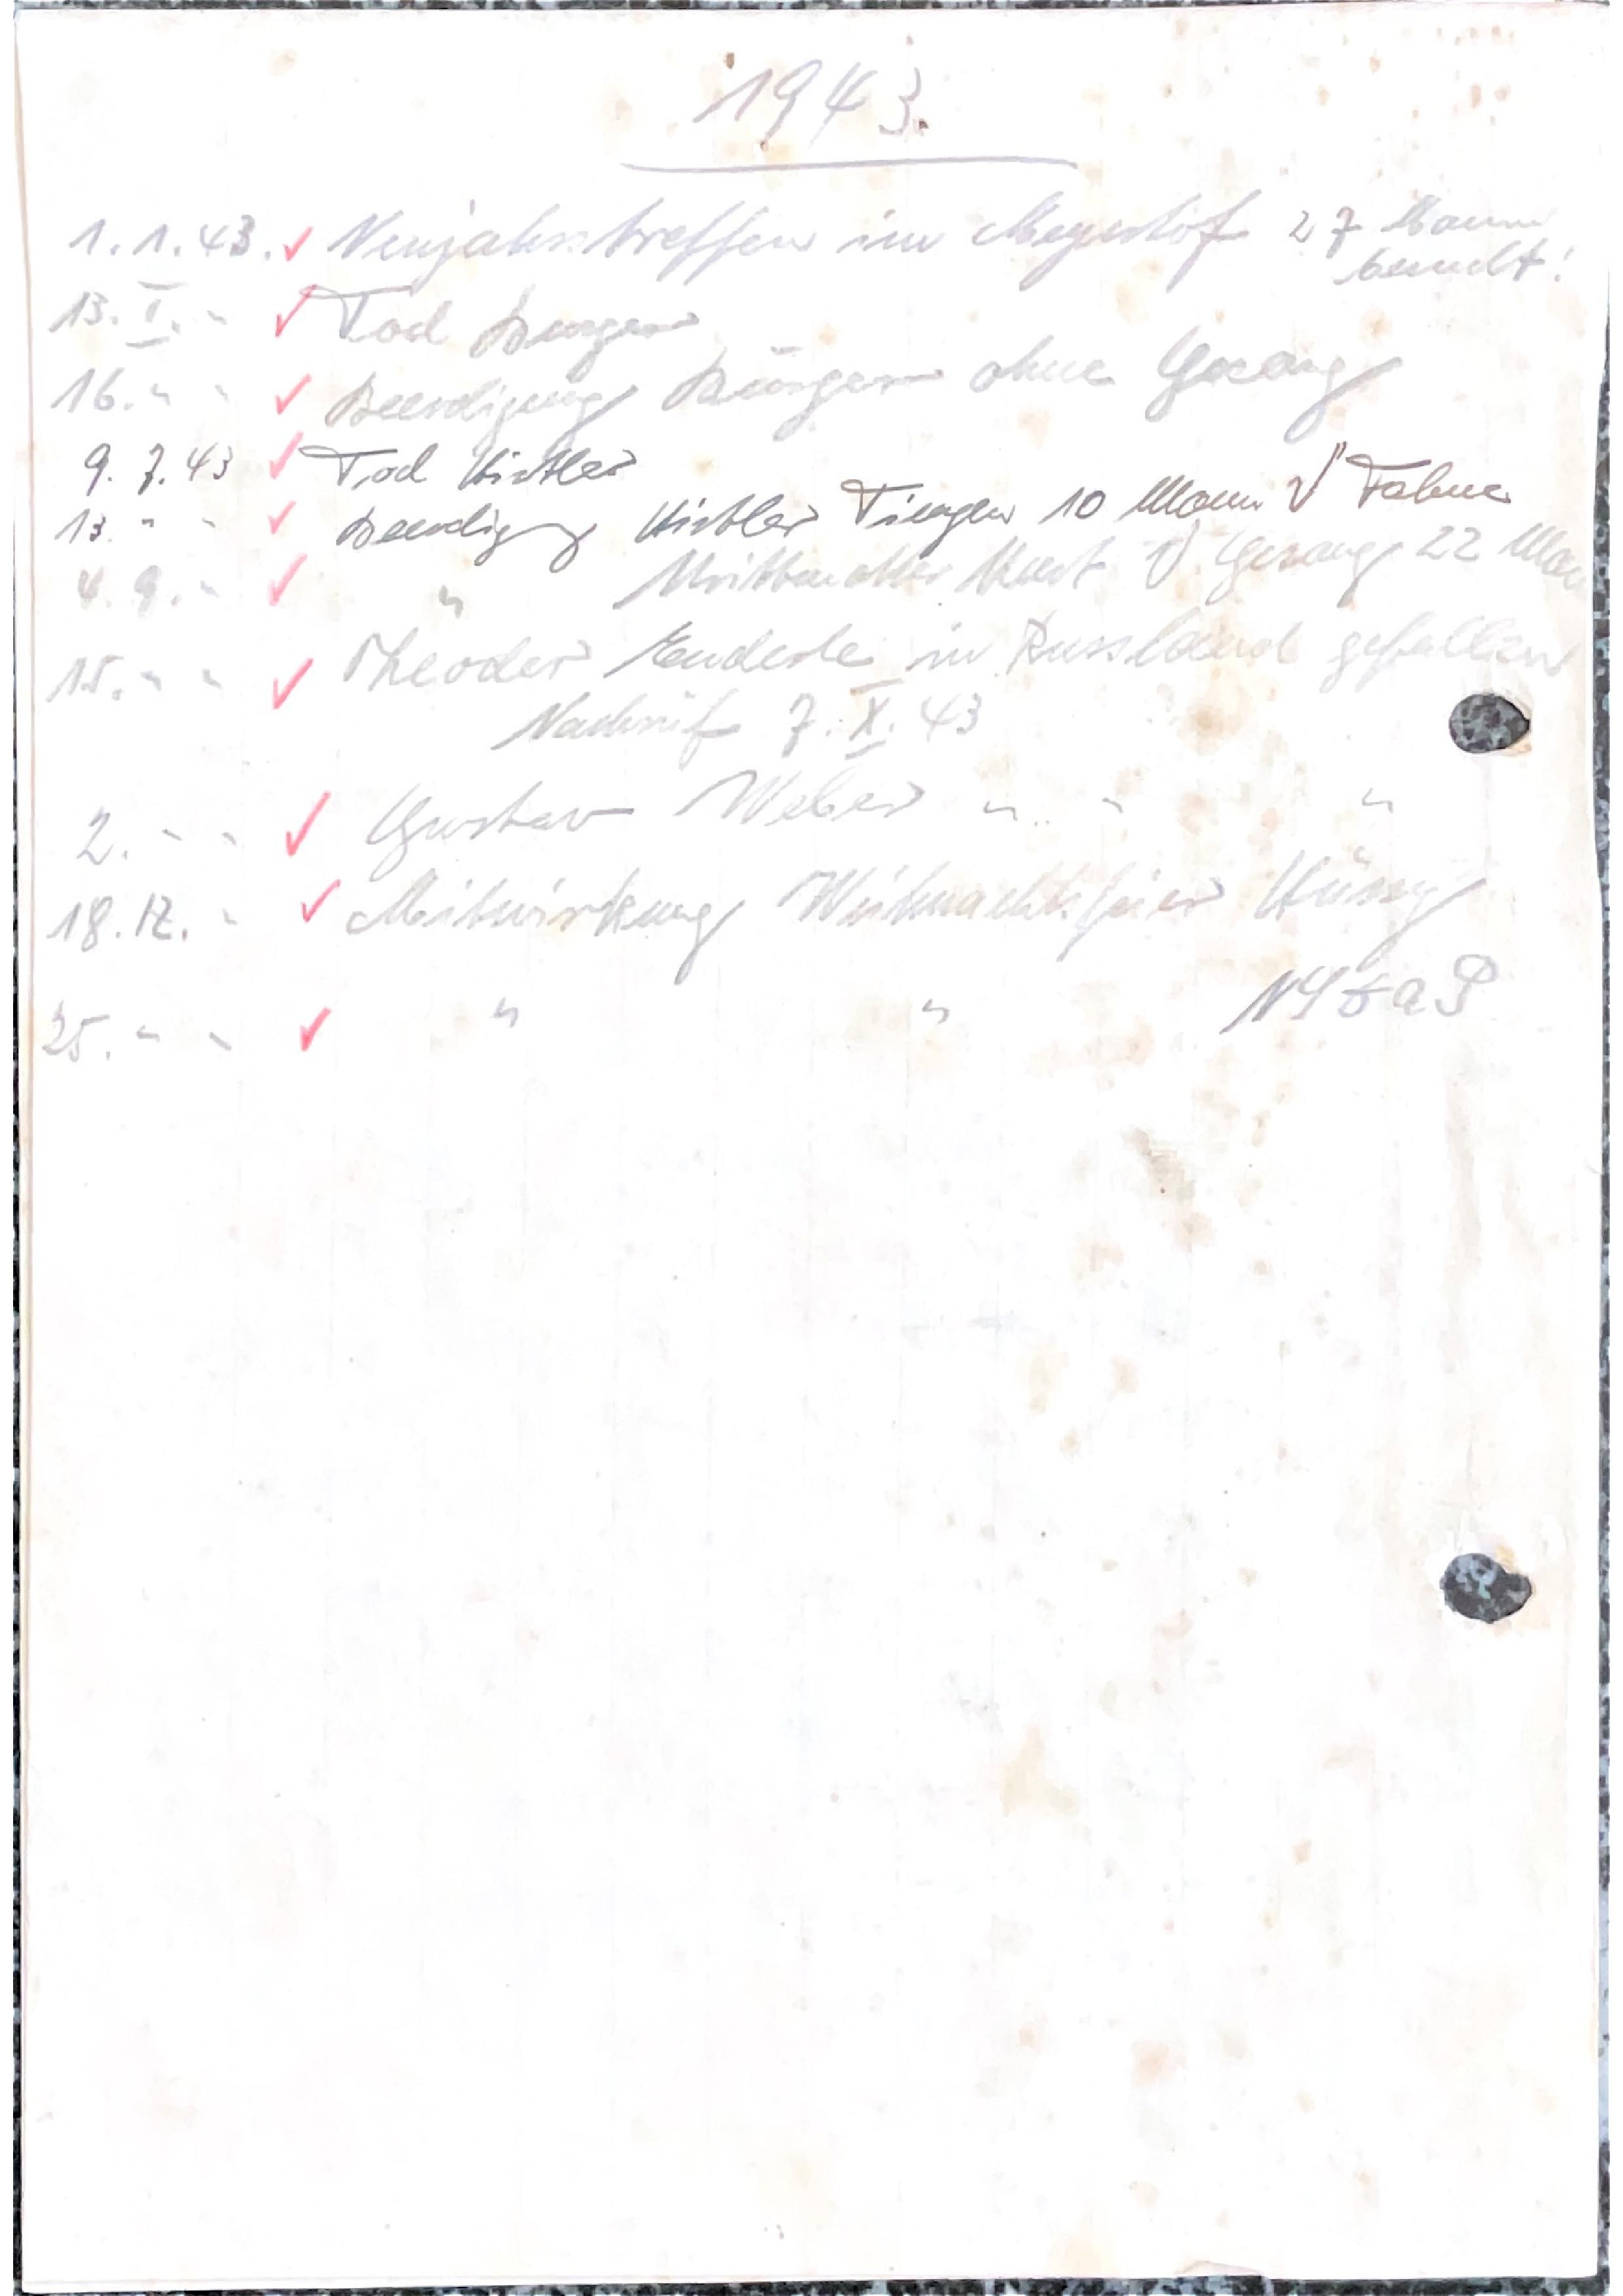 1943.
1.1.43. ✓ Neujahrstreffen im Meyerhof 27 Mann
besucht!
13.I. " ✓ Tod Burger
16. " " ✓ Beerdigung Burger ohne Gesang
9.7.43 ✓ Tod Kistler
13. " " ✓ Beerdigg Kistler Tiengen 10 Mann √ Fahne
4.9. " ✓ " Kurt √ Gesang 22 Mann
15. " " ✓ Theodor Enderle in Russland gefallen
Nachruf 7.X.43
2. " " ✓ Gustav Weber " " "
18.12. " ✓ Mitwirkung Weihnachtsfeier Hüssy
25. " " ✓ " "